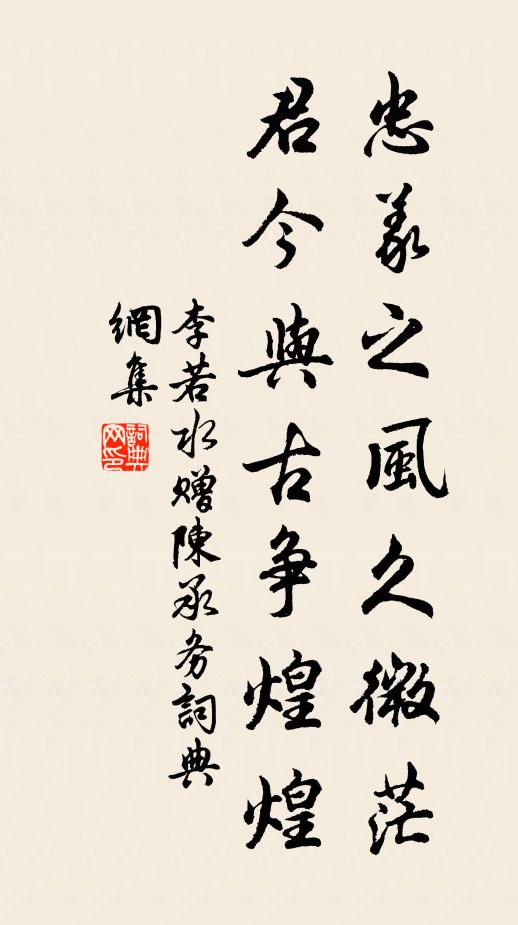 忠義之風久微茫
君今與古争煌煌
李若水贈陳承务詞典
網集
詞典
网印